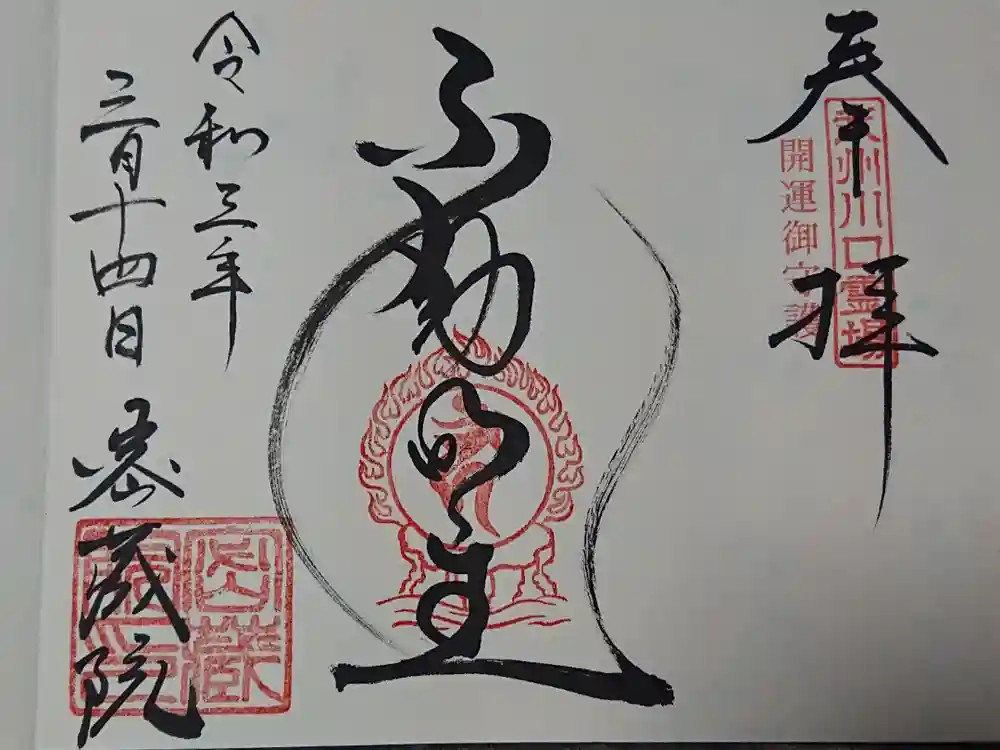 奉拝
武州川口霊場
開運御守護
不動明王
令和三年
三月十四日
密蔵院
密蔵